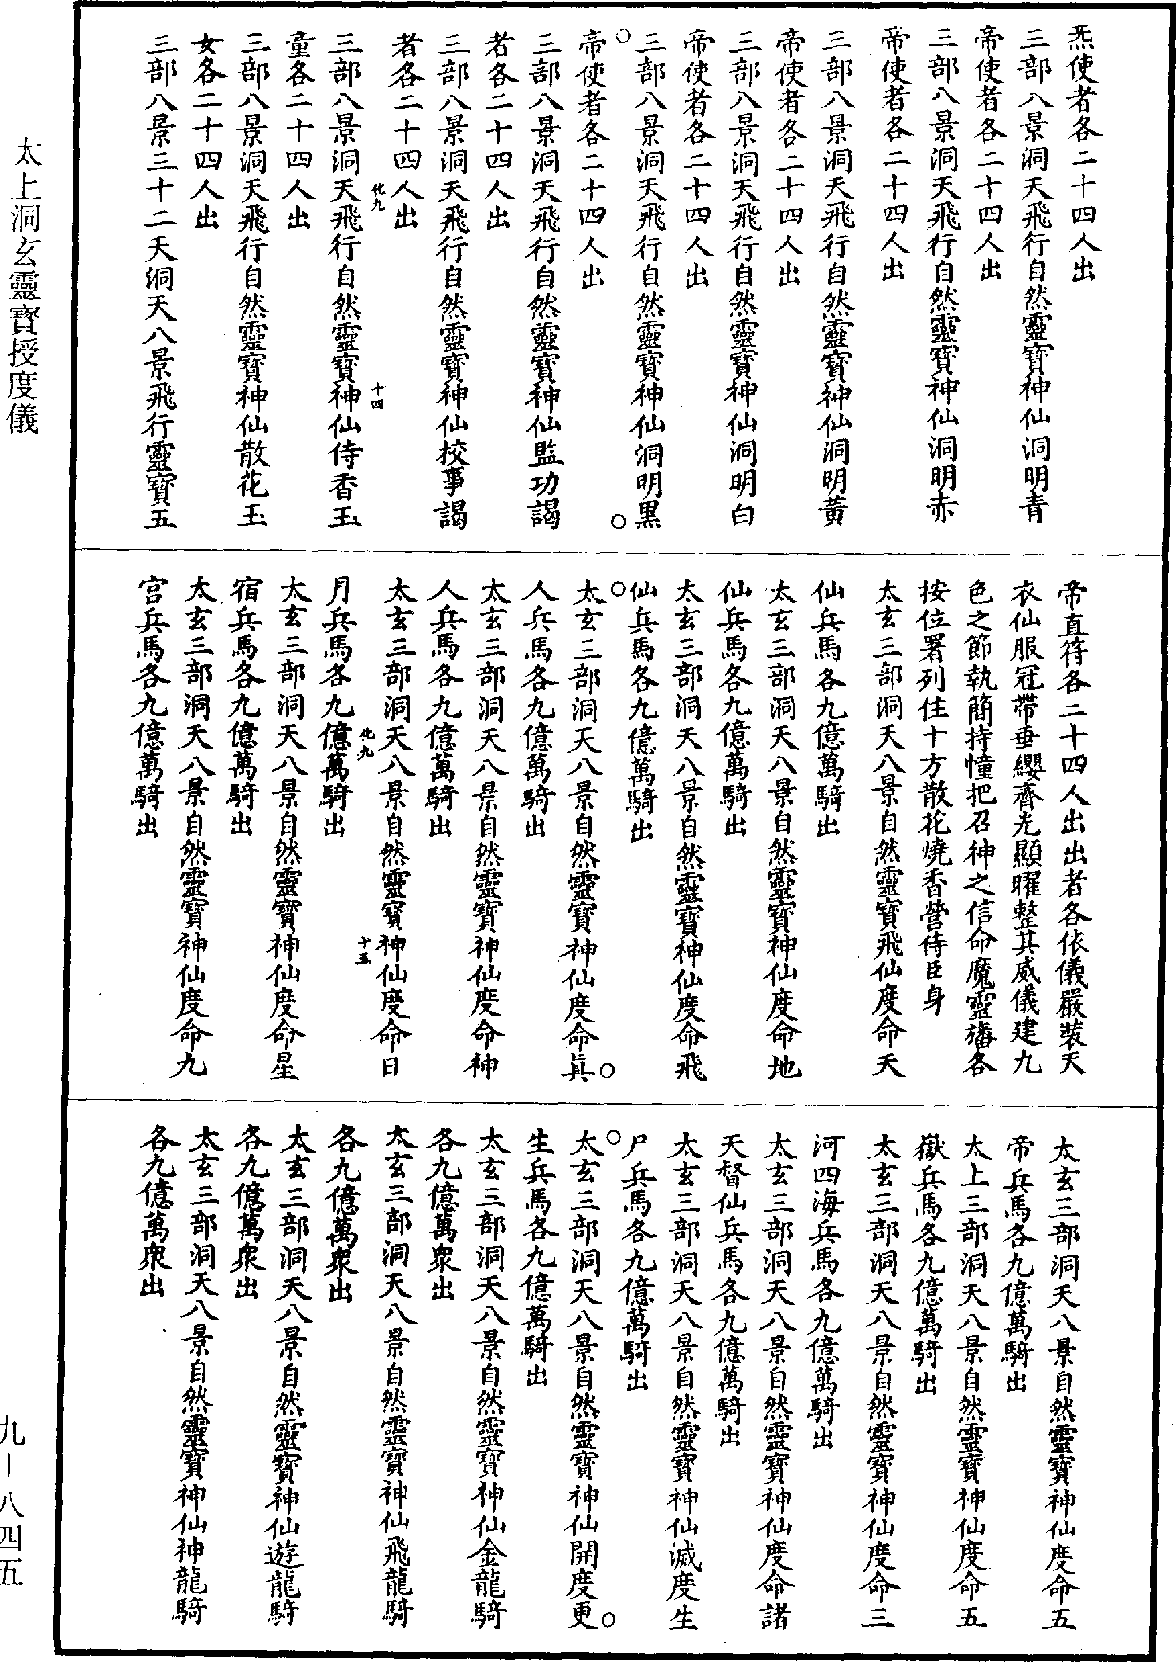 炁使者各二十四人出
三部八景洞天飛行自然靈寶神仙洞明青
帝使者各二十四人出
三部八景洞天飛行自然靈寶神仙洞明赤
帝使者各二十四人出
三部八景洞天飛行自然靈寶神仙洞明黃
帝使者各二十四人出
三部八景洞天飛行自然靈寶神仙洞明白
帝使者各二十四人出
三部八景洞天飛行自然靈寶神仙洞明黑
帝使者各二十四人出
三部八景洞天飛行自然靈寶神仙監功謁
者各二十四人出
三部八景洞天飛行自然靈寶神仙校事謁
者各二十四人出
化九 十四
三部八景洞天飛行自然靈寶神仙侍香玉
童各二十四人出
三部八景洞天飛行自然靈寶神仙散花玉
女各二十四人出
三部八景三十二天洞天八景飛行靈寶五
帝直符各二十四人出出者各依儀嚴裝天
衣仙服冠帶垂纓齊光顯曜整其威儀建九
色之節執簡持幢把召神之信命魔靈旛各
按位署列住十方散花燒香營侍臣身
太玄三部洞天八景自然靈寶飛仙度命天
仙兵馬各九億萬騎出
太玄三部洞天八景自然靈寶神仙度命地
仙兵馬各九億萬騎出
太玄三部洞天八景自然靈寶神仙度命飛
仙兵馬各九億萬騎出
太玄三部洞天八景自然靈寶神仙度命真
人兵馬各九億萬騎出
太玄三部洞天八景自然靈寶神仙度命神
人兵馬各九億萬騎出
太玄三部洞天八景自然靈寶神仙度命日
化九 十五
月兵馬各九億萬騎出
太玄三部洞天八景自然靈寶神仙度命星
宿兵馬各九億萬騎出
太玄三部洞天八景自然靈寶神仙度命九
宮兵馬各九億萬騎出
太玄三部洞天八景自然靈寶神仙度命五
帝兵馬各九億萬騎出
太上三部洞天八景自然靈寶神仙度命五
嶽兵馬各九億萬騎出
太玄三部洞天八景自然靈寶神仙度命三
河四海兵馬各九億萬騎出
太玄三部洞天八景自然靈寶神仙度命諸
天督仙兵馬各九億萬騎出
太玄三部洞天八景自然靈寶神仙滅度生
尸兵馬各九億萬騎出
太玄三部洞天八景自然靈寶神仙開度更
生兵馬各九億萬騎出
太玄三部洞天八景自然靈寶神仙金龍騎
各九億萬衆出
太玄三部洞天八景自然靈寶神仙飛龍騎
各九億萬衆出
太玄三部洞天八景自然靈寶神仙遊龍騎
各九億萬衆出
太玄三部洞天八景自然靈寶神仙神龍騎
各九億萬衆出
太上洞玄靈寶授度儀
九—八四五